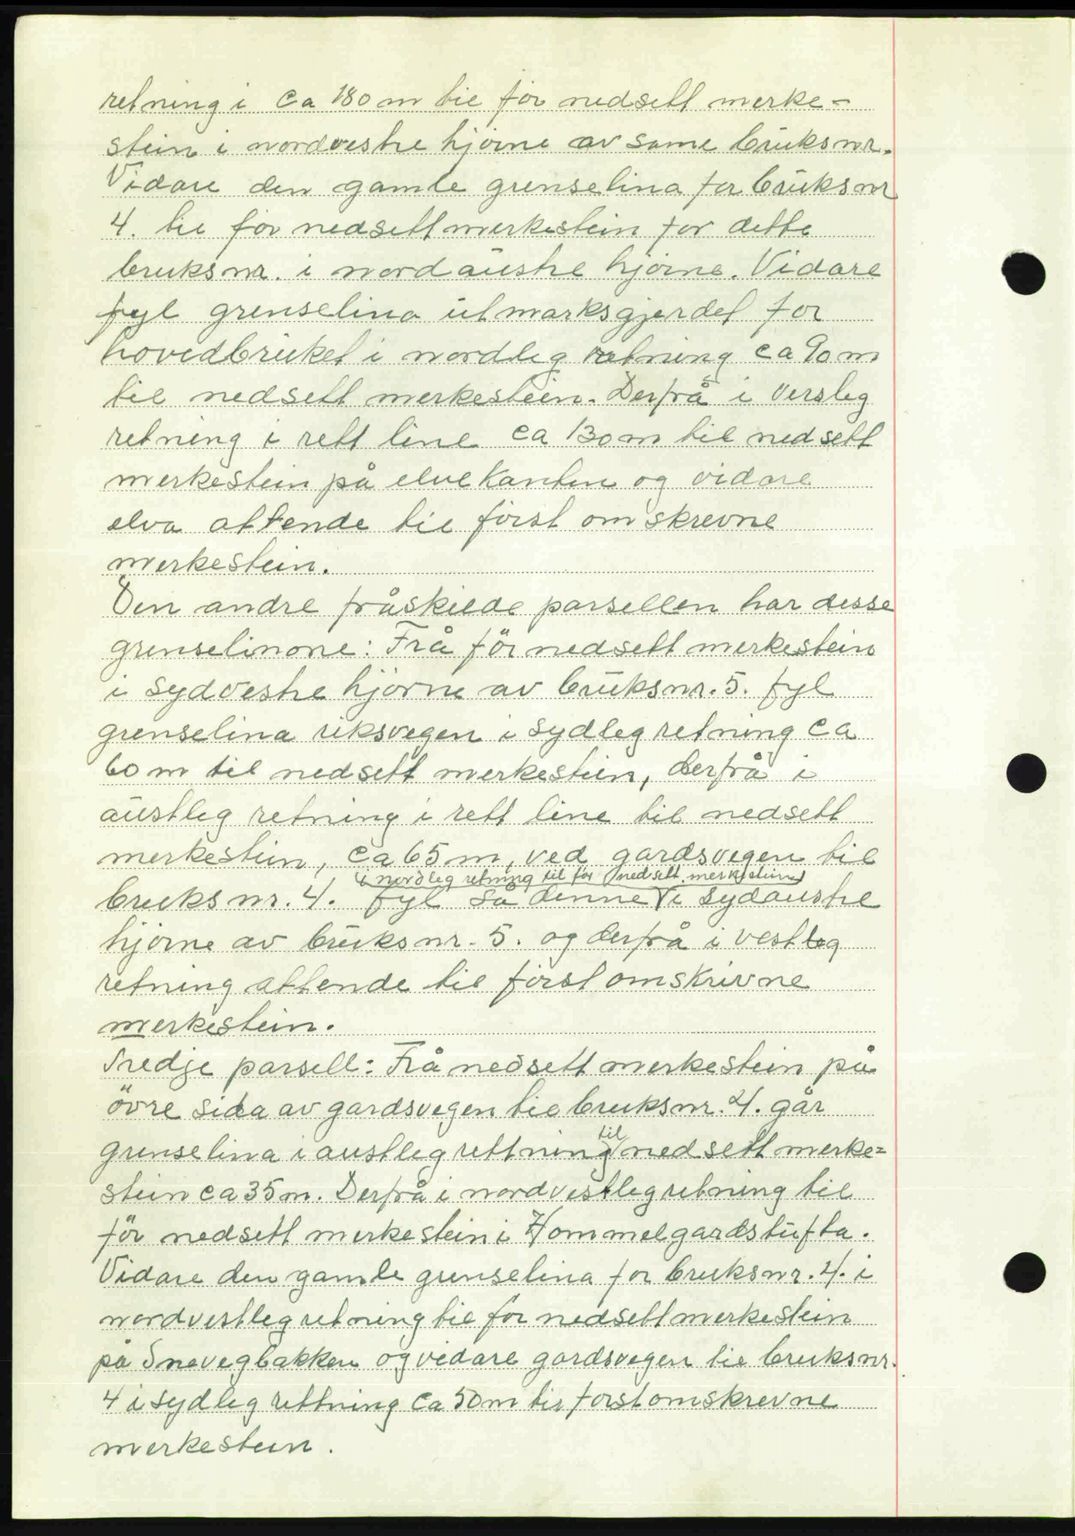 retning i ca 180 m til før nedsett merke-
stein i nordvestre hjörne av same bruksnr.
Vidare den gamle grenselina for bruksnr
4. til för nedsett merkestein for dette
bruksnr. i nordaustre hjörne. Vidare
fyl grenselina utmarksgjerdet for
hovedbruket i nordleg retning ca 90 m
til nedsett merkestein. Derfrå i versleg
retning i rett line ca 130 m til nedsett
merkestein på elvekanten og vidare
elva attende til först omskrevne
merkestein.
Den andre fråskilde parsellen har desse
grenselinone: Frå för nedsett merkestein
i sydvestre hjörne av bruksnr. 5. fyl
grenselina riksvegen i sydleg retning ca
60 m til nedsett merkestein, derfrå i
austleg retning i rett line til nedsett
merkestein, ca 65 m, ved gardsvegen til
i nordleg retning til før nedsett merkestein
bruksnr. 4. fyl så denne V i sydaustre
hjörne av bruksnr. 5. og derfrå i vestleg
retning attende til först omskrivne
merkestein.
Tredje parsell: Frå nedsett merkestein på
övre sida av gardsvegen til bruksnr. 4. går
til
grenselina i austleg rettning nedsett merke=
stein ca 35 m. Derfrå i nordvestleg retning til
för nedsett merkestein i Hommelgardstufta.
Vidare den gamle grenselina for bruksnr. 4. i
nordvestleg retning til for nedsett merkestein
på Snevegbakken og vidare gardsvegen til bruksnr.
4 i sydleg rettning ca 50 m til først omskrevne
merkestein.